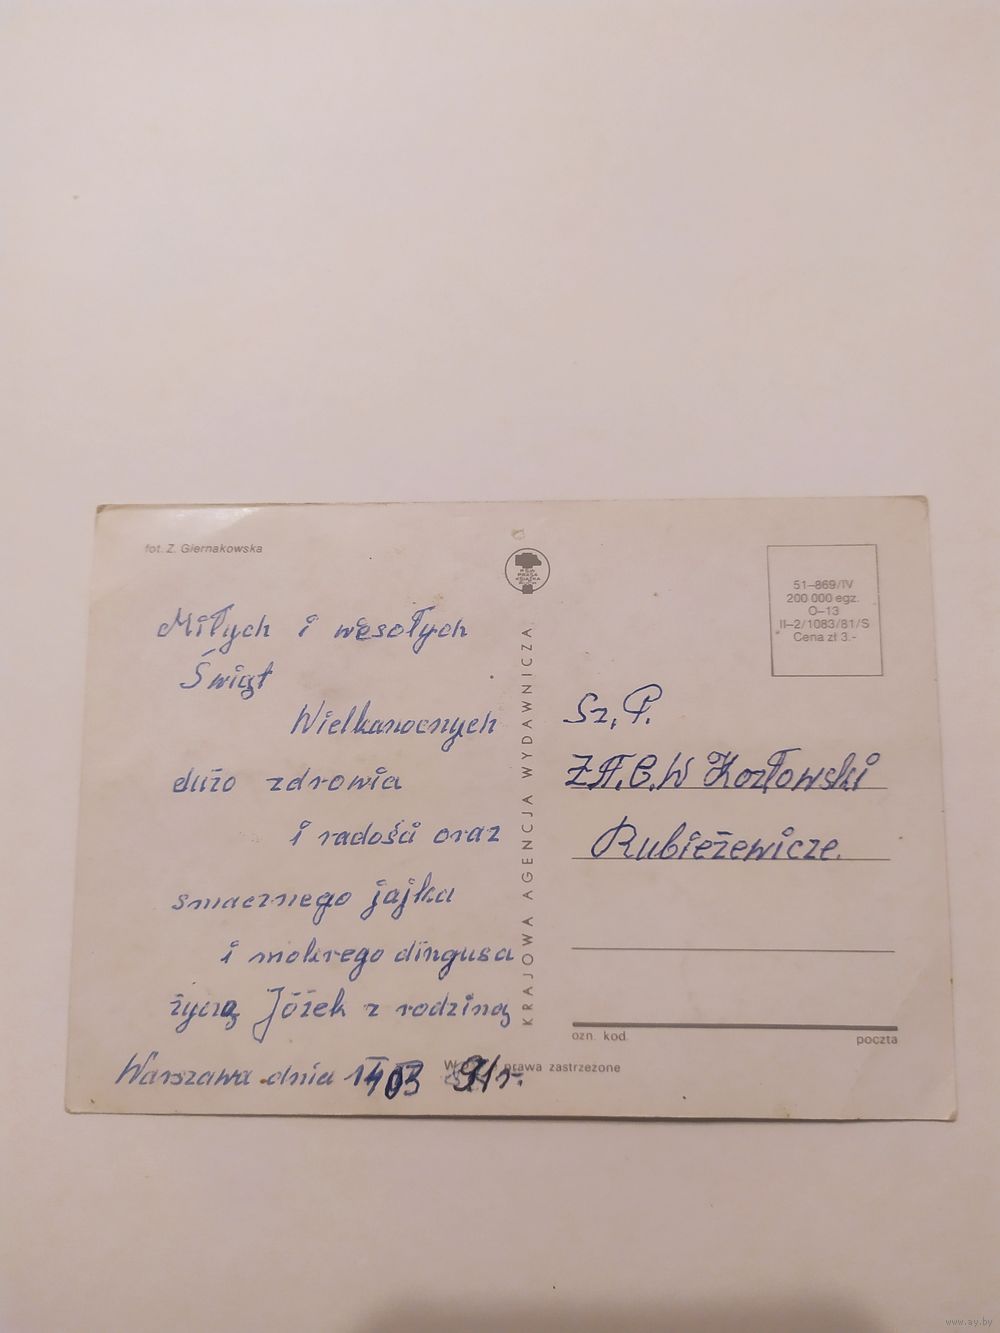 fot. Z. Giernakowska
Miłych i wesołych
Świąt
Wielkanocnych
dużo zdrowia
i radości oraz
smacznego jajka
i mokrego dingusa
życzą Józek z rodziną
Warszawa dnia 03 91r.
RSW
PRASA
KSIĄŻKA
RUCH
KRAJOWA AGENCJA WYDAWNICZA
prawa zastrzeżone
51–869/IV
200 000 egz.
O–13
II–2/1083/81/S
Cena zł 3.-
Sz. P.
W Kozłowski
Rubieżewicze.
ozn. kod.
poczta
www.ay.by